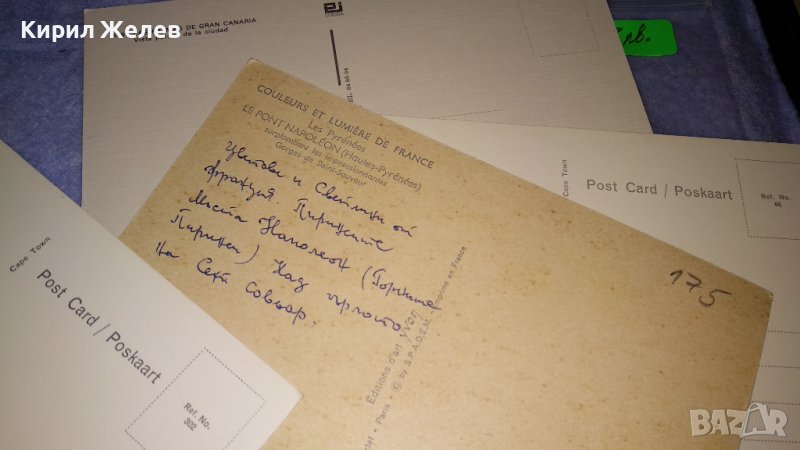 Кирил Желев
DE GRAN CANARIA
de la ciudad
лв.
COULEURS ET LUMIÈRE DE FRANCE
Les Pyrénées
LE PONT NAPOLÉON (Hautes-Pyrénées)
surplombant les impressionnantes
Gorges de Saint-Sauveur
Цветове и Светлини от
Франция. Пиринеите
Моста Наполеон (Горните
Пиринеи) Над гърлото
на Сент Совьор.
175
Editions d'art yvon
Paris © by S.P.A.D.E.M. Imprimé en France
Cape Town
Post Card / Poskaart
Ref. No.
302
Cape Town
Post Card / Poskaart
Ref. No.
45
BAZAR